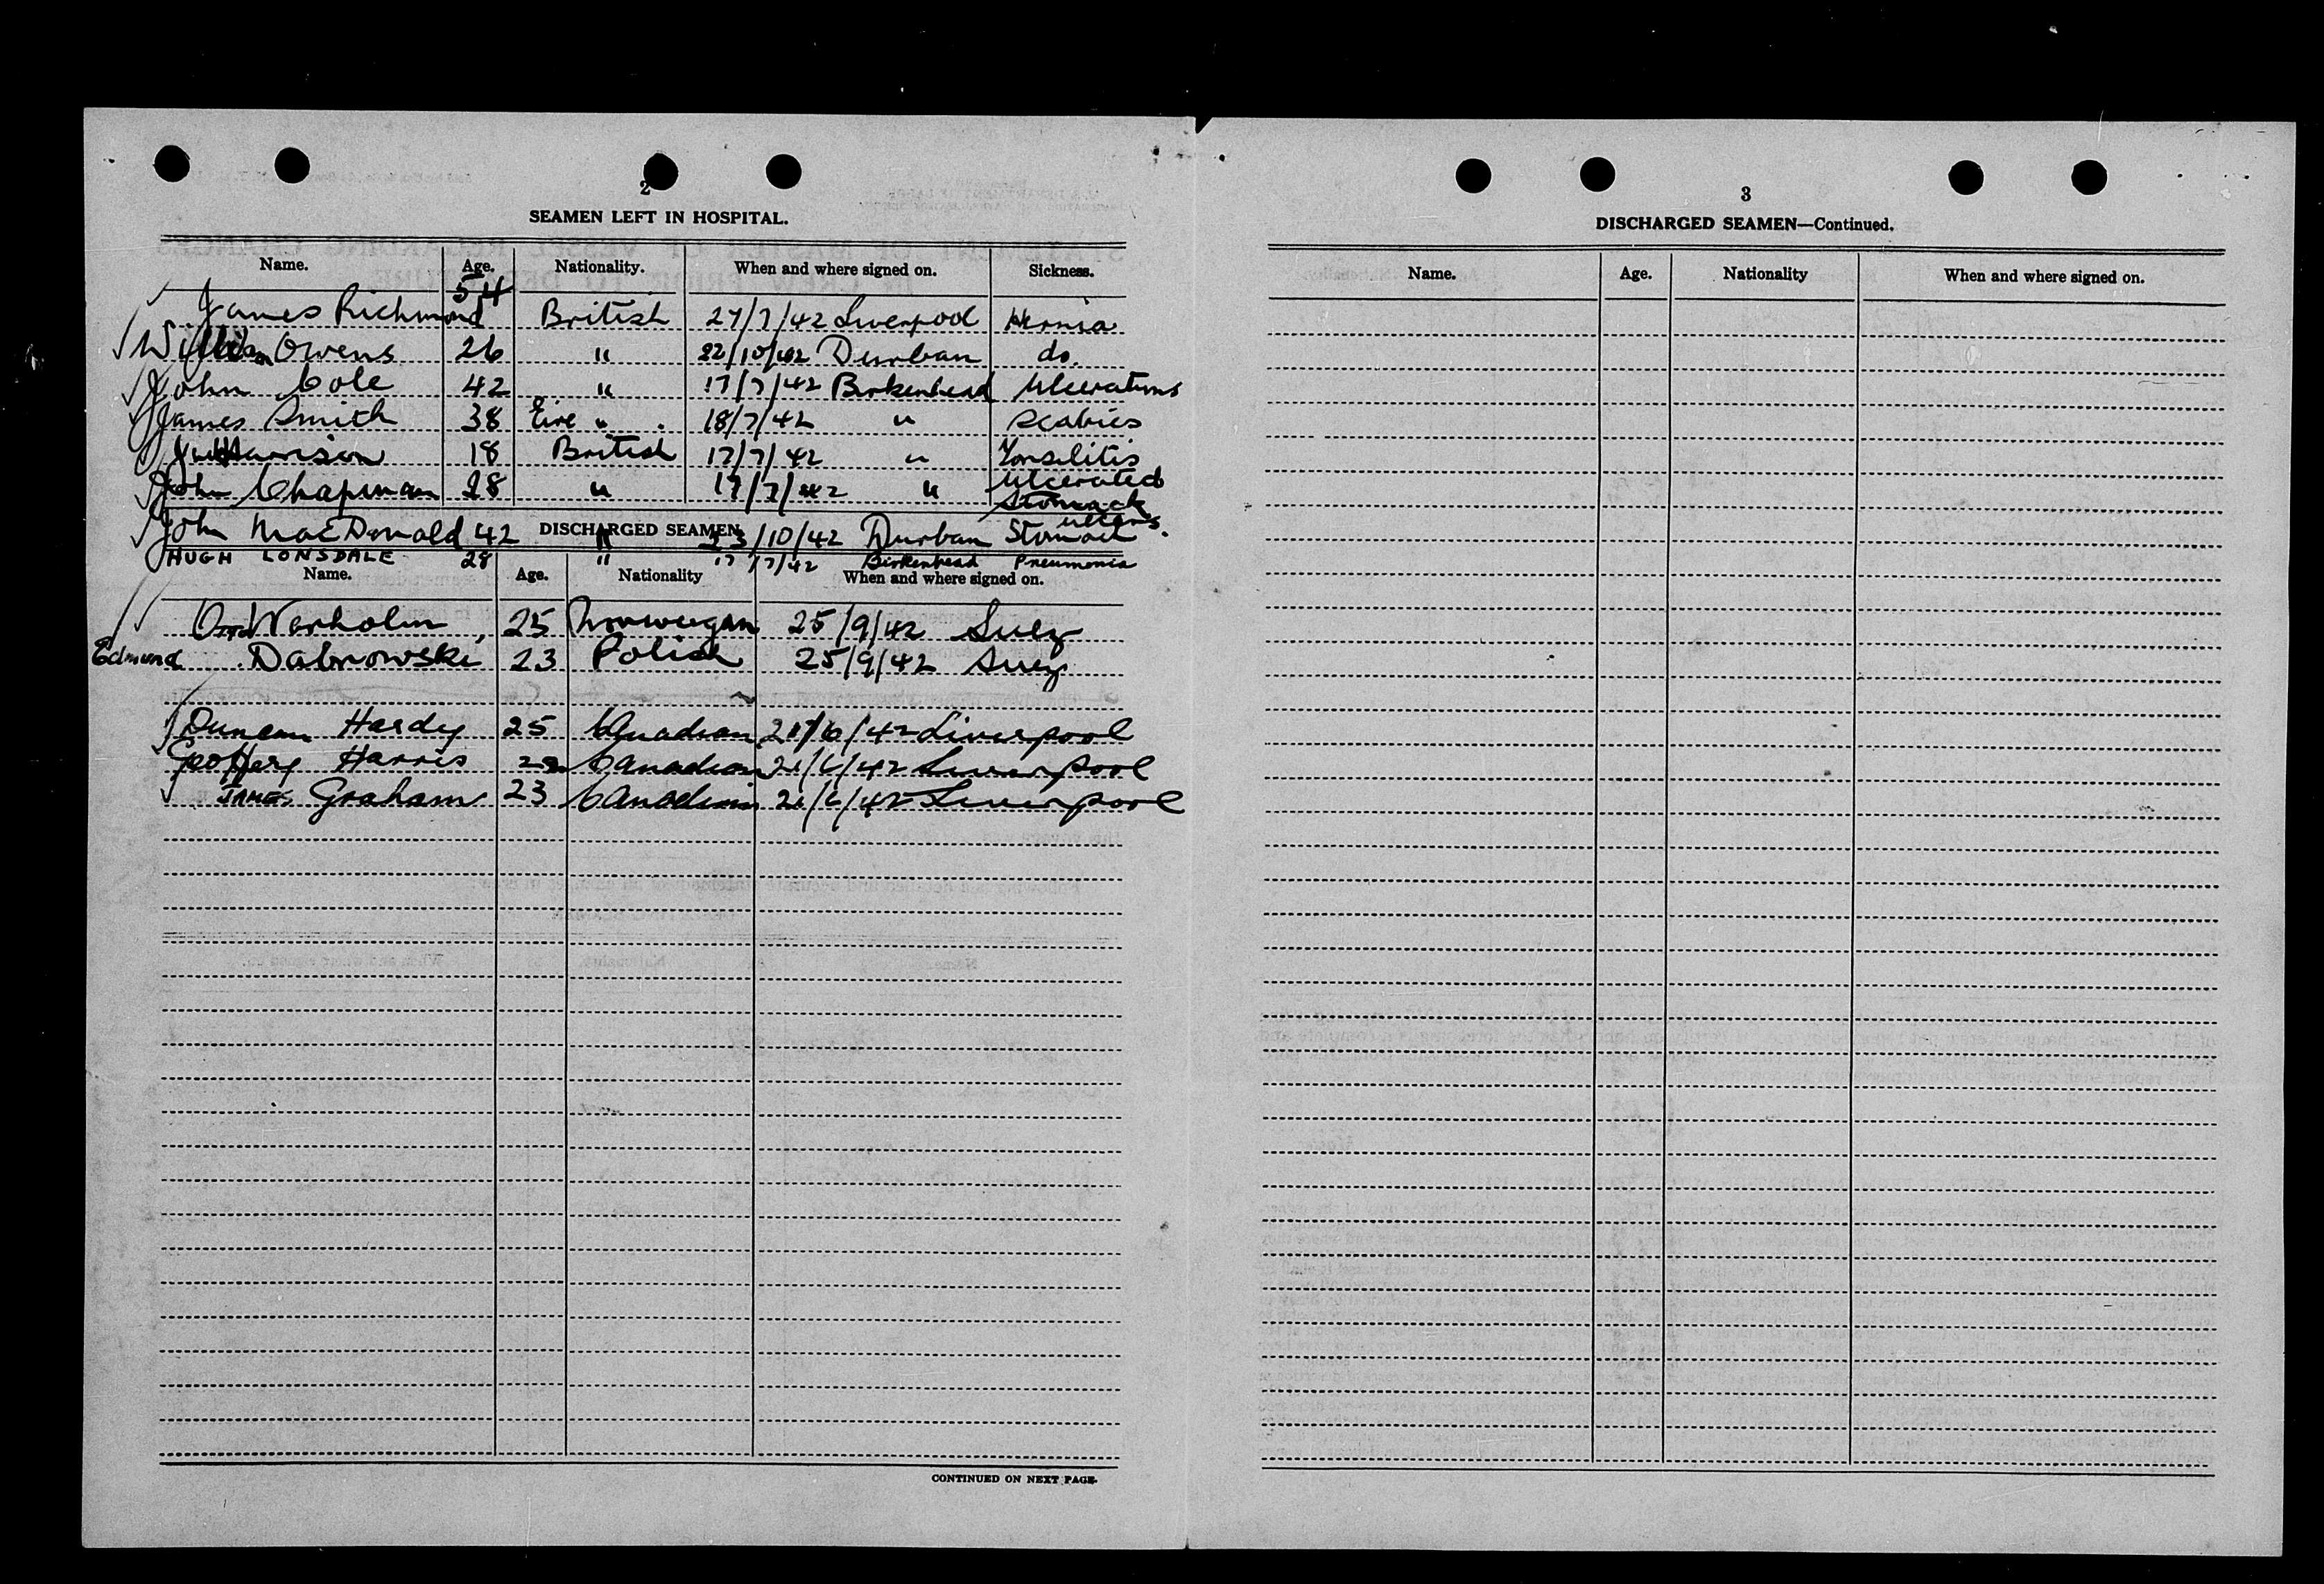 2
SEAMEN LEFT IN HOSPITAL.
Name. Age. Nationality. When and where signed on. Sickness.
James Richmond 54 British 27/7/42 Liverpool Hernia
William Owens 26 " 22/10/42 Durban do.
John Cole 42 " 17/7/42 Birkenhead Ulcerations
James Smith 38 Eire " 18/7/42 " Scabies
Harrison 18 British 17/7/42 " Tonsilitis
John Chapman 28 " 17/7/42 " Ulcerated Stomach
John MacDonald 42 " 23/10/42 Durban Stomach ulcers.
DISCHARGED SEAMEN
HUGH LONSDALE 28 " 17/7/42 Birkenhead Pneumonia
Name. Age. Nationality When and where signed on.
Verholm, 25 Norwegan 25/9/42 Suez
Edmund Dabrowski 23 Polish 25/9/42 Suez
Duncan Hardy 25 Canadian /42 Liverpool
Geoffery Harris Canadian 21/6/42 Liverpool
JAMES Graham 23 Canadian 21/6/42 Liverpool
CONTINUED ON NEXT PAGE
3
DISCHARGED SEAMEN—Continued.
Name. Age. Nationality When and where signed on.